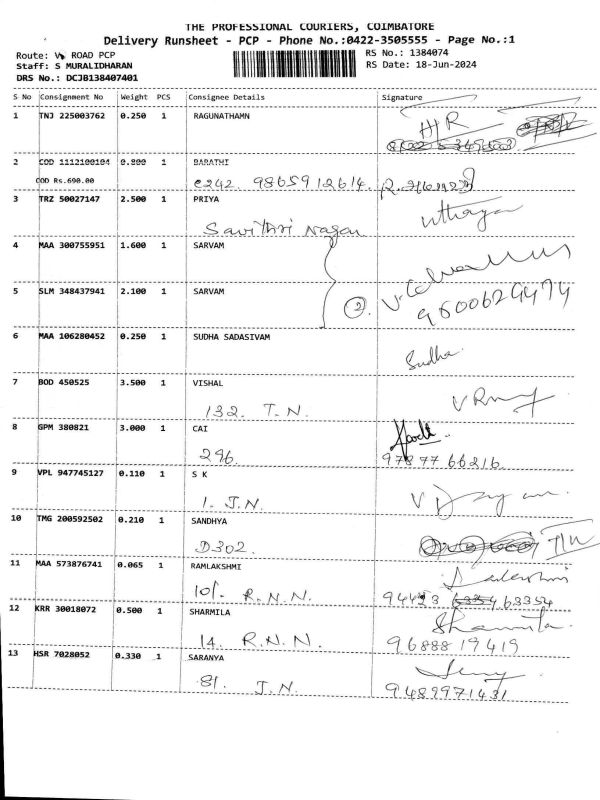 THE PROFESSIONAL COURIERS, COIMBATORE
Delivery Runsheet - PCP - Phone No.:0422-3505555 - Page No.:1
Route: V ROAD PCP
RS No.: 1384074
Staff: S MURALIDHARAN
RS Date: 18-Jun-2024
DRS No.: DCJB138407401
S No Consignment No Weight PCS Consignee Details Signature
1 TNJ 225003762 0.250 1 RAGUNATHAMN
2 COD 1112100104 0.800 1 BARATHI
COD Rs.690.00 C242. 9865912614.
3 TRZ 50027147 2.500 1 PRIYA
Savithri Nagar
4 MAA 300755951 1.600 1 SARVAM
5 SLM 348437941 2.100 1 SARVAM
② 9600629474
6 MAA 106280452 0.250 1 SUDHA SADASIVAM
Sudha
7 BOD 450525 3.500 1 VISHAL
132. T.N.
8 GPM 380821 3.000 1 CAI
296. 97877 66216.
9 VPL 947745127 0.110 1 S K
1. J.N.
10 TMG 200592502 0.210 1 SANDHYA
D302.
11 MAA 573876741 0.065 1 RAMLAKSHMI
101. R.N.N. 94423 63354
12 KRR 30018072 0.500 1 SHARMILA Sharmila
14. R.N.N. 9688819419
13 HSR 7028052 0.330 1 SARANYA
81. J.N. 9489971431